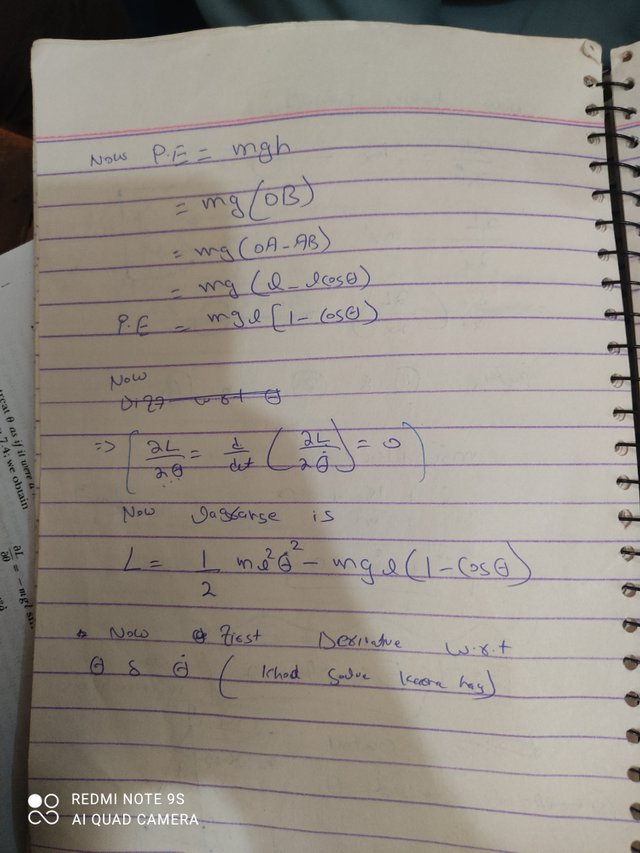 Now P.E = mgh
= mg(OB)
= mg(OA-AB)
= mg(l-lcosθ)
P.E = mgl[1-cosθ)
Now
Diff w.r.t θ
=> [∂L/∂θ = d/dt (∂L/∂θ̇) = 0)
Now is
L = 1/2 ml²θ̇² - mgl(1-Cosθ)
Now First Derivative w.r.t
θ & θ̇ (khod solve karna hay)
treat θ as if it were a
7.4, we obtain
∂L/∂θ = -mgl
REDMI NOTE 9S
AI QUAD CAMERA